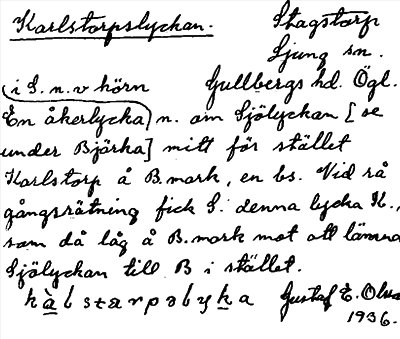 Karlstorpslyckan. Stagstorp
Ljung sn.
i S. n. v hörn Gullbergs hd. Ögl.
En åkerlycka n. om Sjölyckan [se
under Bjärka] mitt för stället
Karlstorp å B. mark, en bs. Vid rå
gångsrätning fick S. denna lycka K.,
som då låg å B. mark mot att lämna
Sjölyckan till B i stället.
Gustaf E. Olss
1936.